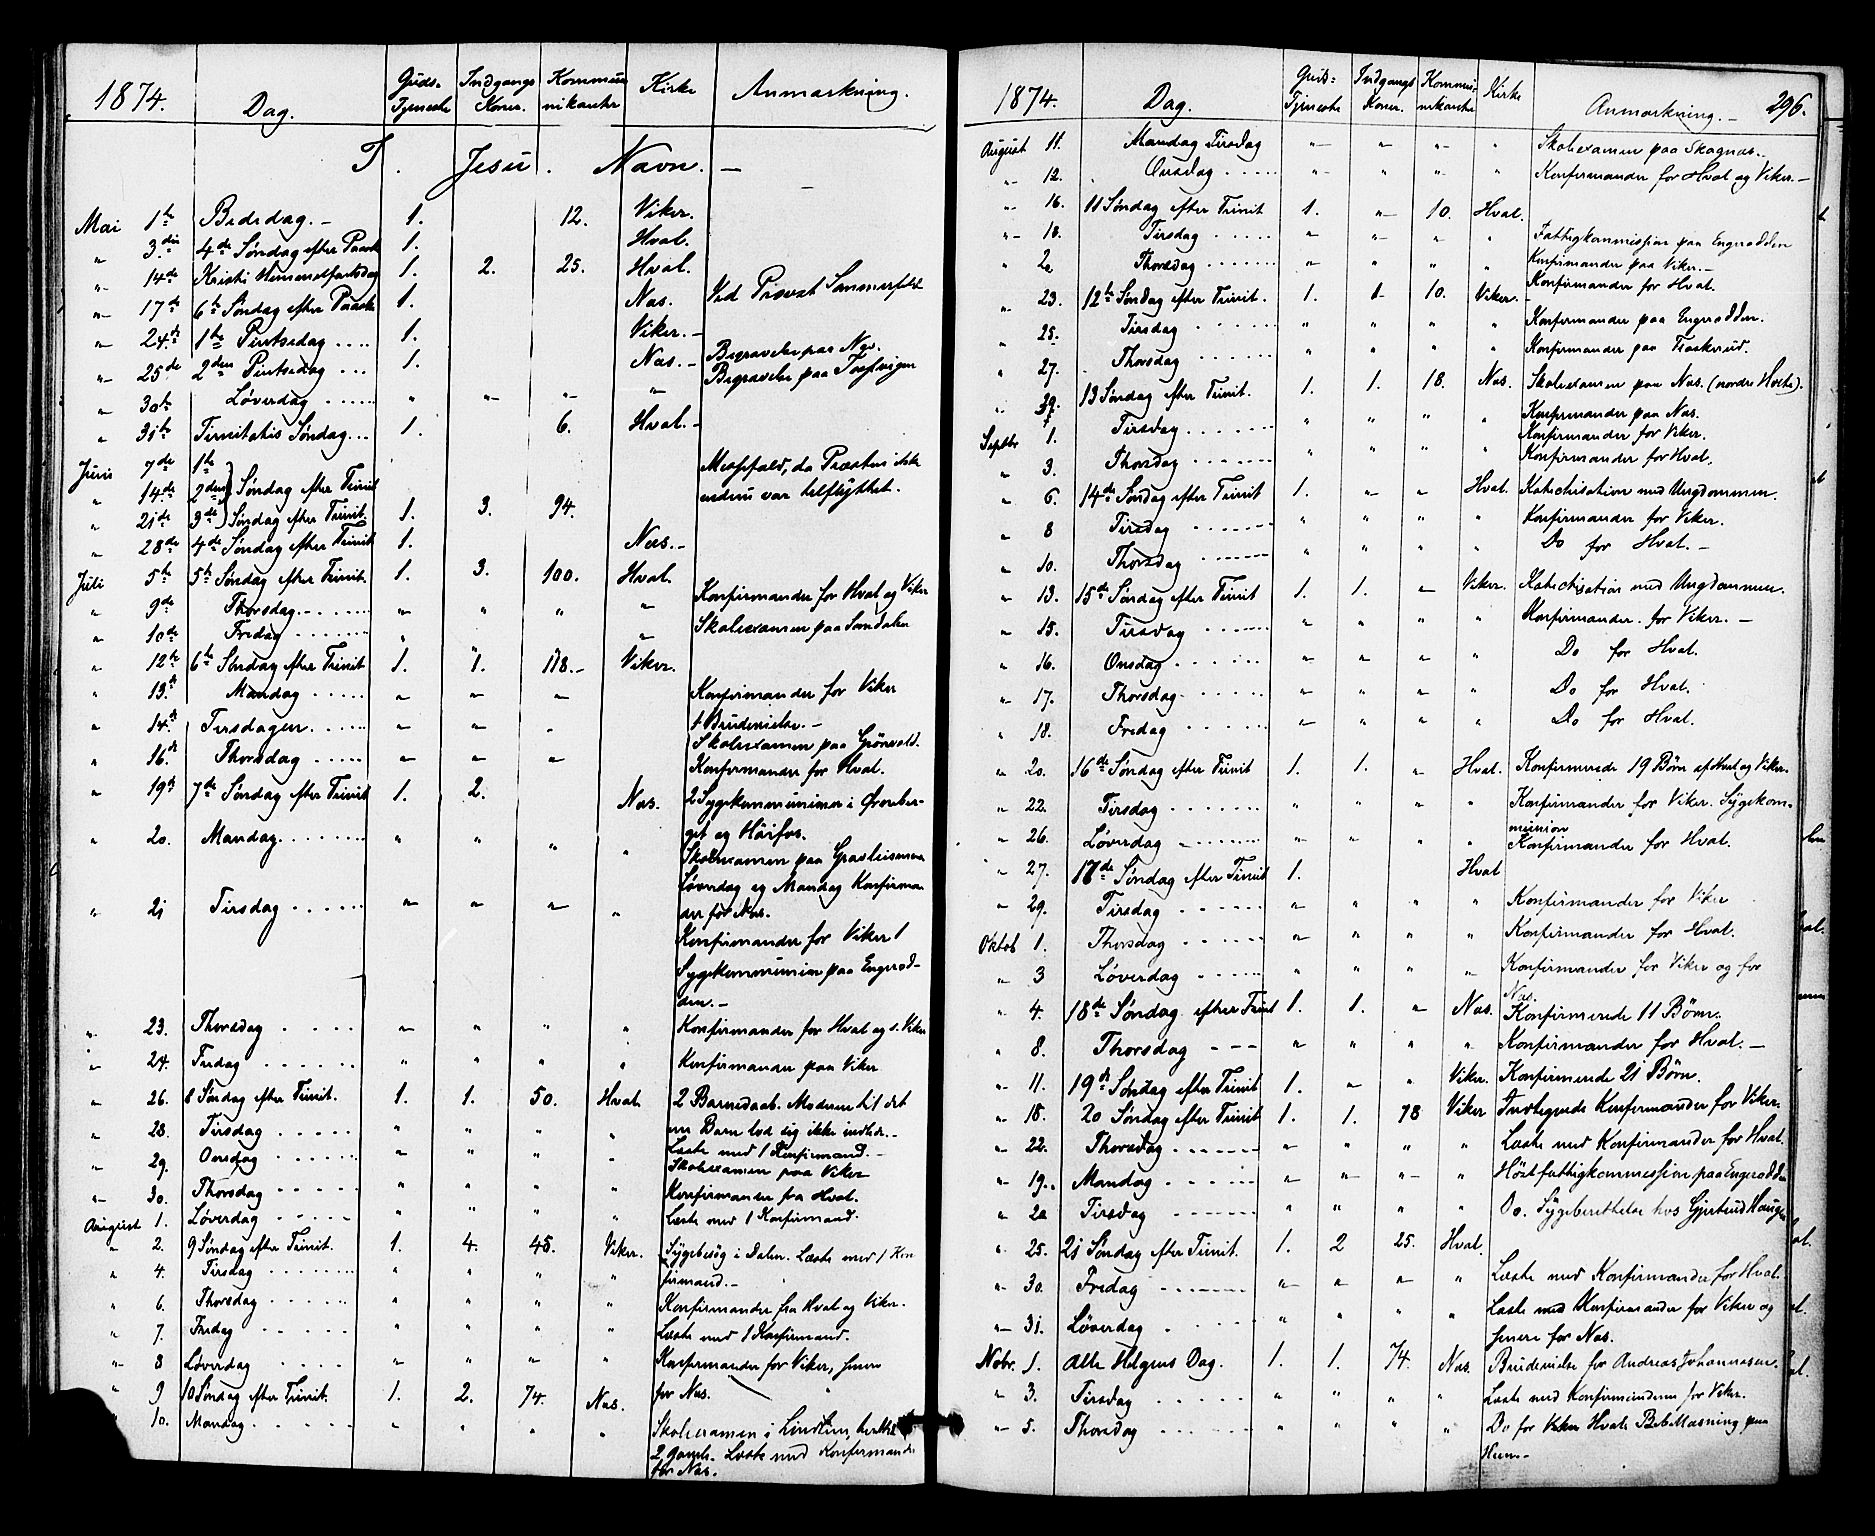 1874. Dag. Guds- Tjeneste Indgangs Koner. Kommunikanter Kirke Anmærkning.
I. Jesu. Navn. —
Mai 1te Bededag. — 1. 12. Viker.
" 3die 4de Søndag efter Paaske 1. Hval.
" 14de Kristi Himmelfartsdag 1. 2. 25. Hval.
" 17de 6te Søndag efter Paaske 1. Næs. Ved Provst Sommerfeldt
" 24de 1te Pintsedag .... 1. Viker. —
" 25de 2den Pintsedag ... 1. Næs. — Begravelse paa Næs.
" 30te Løverdag ..... " " " " Begravelse paa
" 31te Trinitatis Søndag... 1. 6. Hval. —
Juni 7de 1te
" 14de 2den } Søndag efter Trinit Messefald, da Præsten ikke
" 21de 3de } Søndag efter Trinit. 1. 3. 94. endnu var tilflyttet.
" 28de 4de Søndag efter Trinit 1. Næs. —
Juli 5te 5te Søndag efter Trinit. 1. 3. 100. Hval.
" 9de Thorsdag. ...... " " " " Konfirmander for Hval og Viker
" 10de Fredag ....... " " " Skolexamen paa
" 12te 6te Søndag efter Trinit 1. 1. 118. — Viker.
" 13de Mandag ..... " " " Konfirmander for Viker
" 14de Tirsdagen ..... " " " 1 Brudevielse. —
Skolexamen paa Grønvold.
" 16de Thorsdag ..... " " " Konfirmander for Hval.
" 19de 7de Søndag efter Trinit 1. 2. Næs. 2 Sygekommunioner i
get og Høifos.
" 20. Mandag. ....... " " " " Skolexamen paa
Løverdag og Mandag Konfirman-
" 21 Tirsdag ...... " " " " der for Næs.
Konfirmander for Viker 1
Sygekommunion paa Engerod-
den. —
" 23. Thorsdag .... " " " " Konfirmander for Hval og s. Viker
" 24. Fredag ...... " " " " Konfirmander paa Viker
" 26. 8 Søndag efter Trinit. 1. 1. 50. Hval. 2 Barnedaab. Moderen til det
" 28. Tirsdag ...... " " " " ene Barn lod sig ikke indlede. —
" 29. Onsdag ..... " " " " Læste med 1 Konfirmand. —
Skolexamen paa Viker
" 30. Thorsdag ..... " " " " Konfirmander fra Hval.
August 1. Løverdag ..... " " " " Læste med 1 Konfirmand.
" 2. 9 Søndag efter Trinit. 1. 4. 45. Viker. Sygebesøg i Dalen. Læste med 1 Kon
" 4. Tirsdag ....... " " " " firmand. —
" 6. Thorsdag ...... " " " " Konfirmander fra Hval og Viker.
" 7. Fredag ...... " " " " Læste med 1 Konfirmand.
" 8 Løverdag ...... " " " " Konfirmander for Viker,
" 9 10 Søndag efter Trinit. 1. 2. 74. Næs. for Næs.
" 10. Mandag ...... " " " " Skolexamen i
Læste med Konfirmander
for Næs.
1874. Dag. Guds- Tjeneste Indgangs Koner. Kommunikanter Kirke Anmærkning. — 296.
August 11. Mandag Tirsdag " " " " Skolexamen paa Skagnæs. —
" 12. Onsdag ..... " " " " Konfirmander for Hval og Viker. —
" 16. 11 Søndag efter Trinit 1. " 10. Hval.
" 18. Tirsdag ..... " " " " Fattigkommission paa Engerodden
" 20 Thorsdag ....... " " " " Konfirmander paa Viker. —
Konfirmander for Hval.
" 23. 12te Søndag efter Trinit. 1. 1 10. Viker. —
" 25. Tirsdag ...... " " " " Konfirmander paa Engerodden.
" 27. Thorsdag ...... " " " " Konfirmander paa
" 30. 13 Søndag efter Trinit. 1. 1. 18. Næs. Skolexamen paa Næs. (nordre
Konfirmander paa Næs.
Septbr 1. Tirsdag ....... " " " " Konfirmander for Viker.
" 3. Thorsdag ....... " " " " Konfirmander for Hval.
" 6. 14de Søndag efter Trinit 1. " " Hval. Katechisation med Ungdommen.
" 8 Tirsdag ...... " " " " Konfirmander for Viker.
" 10. Thorsdag ...... " " " " Do for Hval. —
" 13. 15de Søndag efter Trinit 1. 1. " Viker. Katechisation med Ungdommen.
" 15. Tirsdag ...... " " " " Konfirmander. for Viker. —
" 16. Onsdag ...... " " " " Do for Hval.
" 17. Thorsdag. ..... " " " " Do for Hval.
" 18. Fredag ...... " " " " Do for Hval.
" 20. 16de Søndag efter Trinit 1. 1. " Hval. Konfirmerede 19 Børn af Hval og Viker.
" 22. Tirsdag ....... " " " " Konfirmander for Viker. Sygekom-
munion
" 26. Løverdag ....... " " " Konfirmander for Hval.
" 27. 17de Søndag efter Trinit 1. Hval
" 29. Tirsdag ...... " " " " Konfirmander for Viker
Oktob 1. Thorsdag ..... " " " " Konfirmander for Hval.
" 3 Løverdag ..... " " " " Konfirmander for Viker og for
Næs.
" 4. 18de Søndag efter Trinit 1. 1. " Næs. Konfirmerede 11 Børn.
" 8. Thorsdag --- " " " " Konfirmander for Hval. —
" 11. 19de Søndag efter Trinit 1. " " Viker. Konfirmerede 21 Børn.
" 18. 20 Søndag efter Trinit 1. 1. 78 Viker Konfirmander for Viker.
" 22. Thorsdag ...... " " " " Læste med Konfirmander for Hval.
" 19. Mandag ...... " " " " Høstfattigkommission paa Engerodden
" 20 Tirsdag ...... " " " " Do. Sygeberettelse hos
" 25. 21 Søndag efter Trinit. 1. 2 25. Hval.
" 30. Fredag ...... " " " " Læste med Konfirmander for Hval.
" 31. Løverdag . ..... " " " " Læste med Konfirmander for Viker og
for Næs.
Nobr. 1. Alle Helgens Dag. 1. 1. 74. Næs. Brudevielse for Andreas Johannesen.
" 3. Tirsdag ...... " " " " Læste med Konfirmanderne for Viker.
" 5. Thorsdag ...... " " " " Do for Viker Hval. Bibellæsning paa